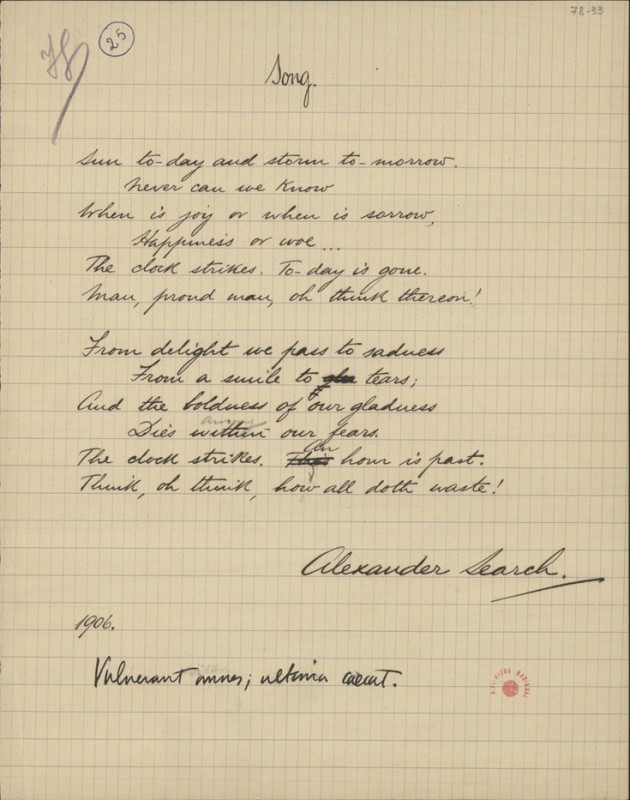 78-33
25
Song.
Sun to-day and storm to-morrow.
Never can we know
When is joy or when is sorrow,
Happiness or woe...
The clock strikes. To-day is gone.
Man, proud man, oh think thereon!
From delight we pass to sadness
From a smile to tears;
And the boldness of our gladness
among
Dies within our fears.
An
The clock strikes. hour is past.
Think, oh think, how all doth waste!
Alexander Search.
1906.
Vulnerant omnes; ultima necat.